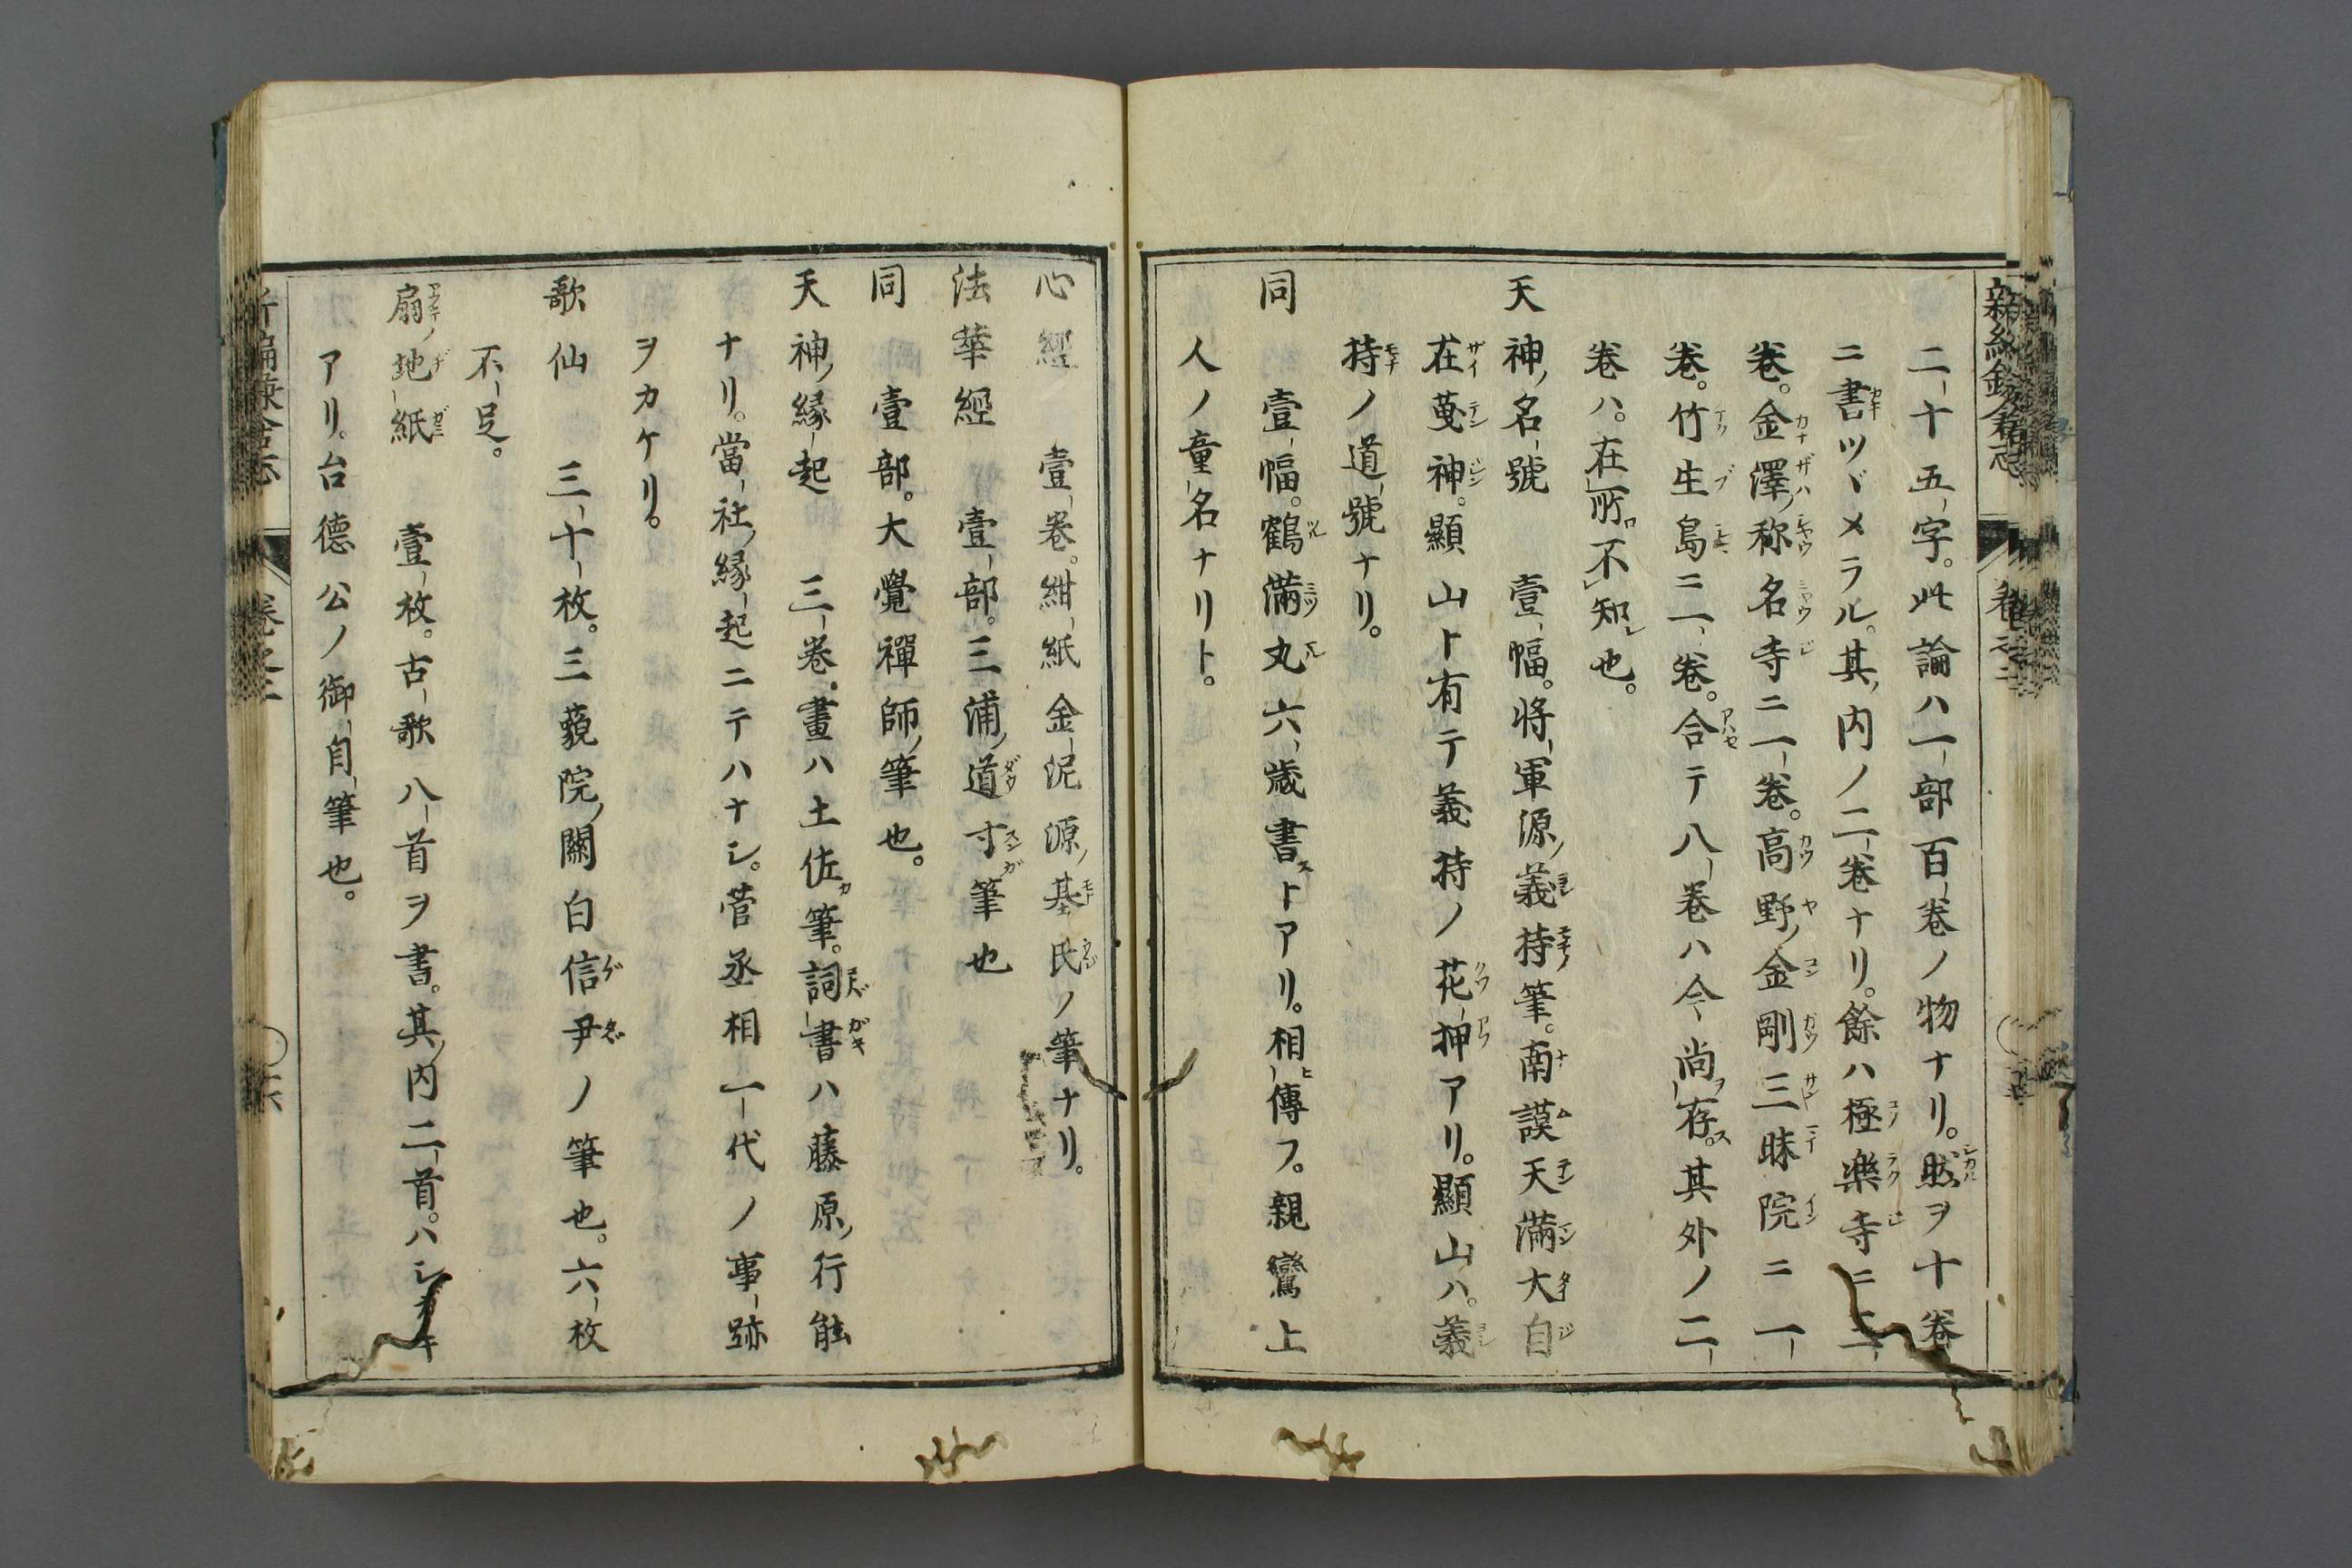 二十五字。此論ハ一部百卷ノ物ナリ。然ヲ十卷
ニ書ツヾメラル。其内ノ二卷ナリ。餘ハ極樂寺ニ二
卷。金澤称名寺ニ一卷。高野金剛三昧院ニ一
卷。竹生島ニ一卷。合テ八卷ハ今尚存ス。其外ノ二
卷ハ。在所不知也。
天神ノ名號　壹幅。将軍源ノ義持筆。南謨天満大自
在天神。顯山ト有テ義持ノ花押アリ。顯山ハ。義
持ノ道號ナリ。
同　壹幅。鶴満丸六歳書トアリ。相傳フ。親鸞上
人ノ童名ナリト。
心經　壹卷。紺紙金泥源ノ基氏ノ筆ナリ。
法華經　壹部。三浦ノ道寸ガ筆也
同　壹部。大覺禪師ノ筆也。
天神ノ縁起　三卷。畫ハ土佐ガ筆。詞書ハ藤原ノ行能
ナリ。當社ノ縁起ニテハナシ。菅丞相一代ノ事跡
ヲカケリ。
歌仙　三十枚。三藐院ノ關白信尹ノ筆也。六枚
不足。
扇ノ地紙　壹枚。古歌八首ヲ書。其内二首。ハシ
アリ。台德公ノ御自筆也。
新編鎌倉志　卷之二